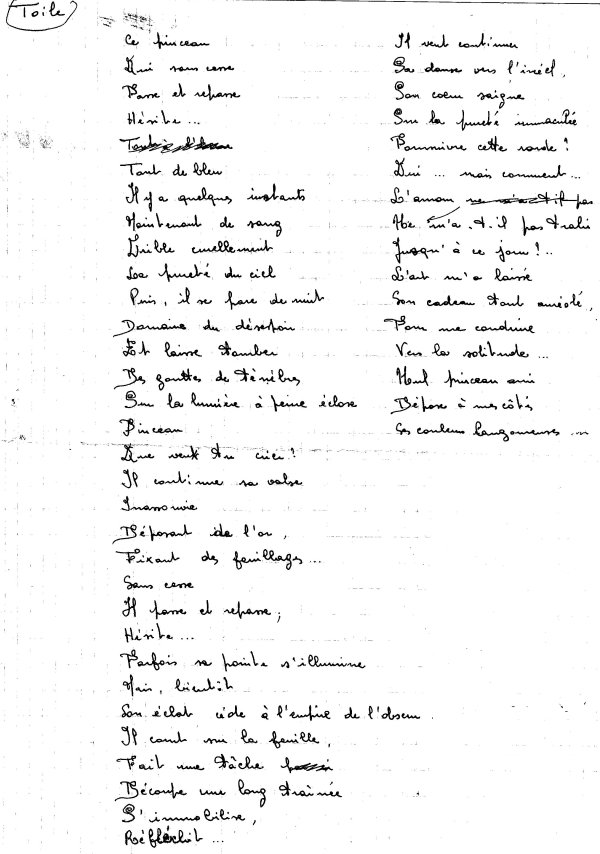 Toile
Ce pinceau
Qui sans cesse
Passe et repasse
Hésite...
Tant de bleu
Il y a quelques instants
Maintenant de sang
Cruellement
La pureté du ciel
Puis, il se pare de nuit
Domaine du désespoir
Et laisse tomber
Des gouttes de ténèbres
Sur la lumière à peine éclose
Pinceau
Que veux tu crier!
Il continue sa valse
Inassouvie
Déposant de l'or,
Fixant des feuillages...
Sans cesse
Il passe et repasse;
Hésite...
Parfois sa pointe s'illumine
Mais, bientôt
Son éclat cède à l'empire de l'obscur
Il court sur la feuille,
Fait une tâche
Découpe une long traînée
S'immobilise,
Réfléchit...
Il veut continuer
Sa danse vers l'irréel,
Son coeur saigne
Sur la pureté immaculée
Poursuivre cette ronde!
Oui... mais comment...
L'amour
Ne m'a-t-il pas trahi
Jusqu'à ce jour!..
L'art m'a laissé
Son cadeau tant
Pour me conduire
Vers la solitude...
Seul pinceau ami
Dépose à mes côtés
Ses couleurs langoureuses...